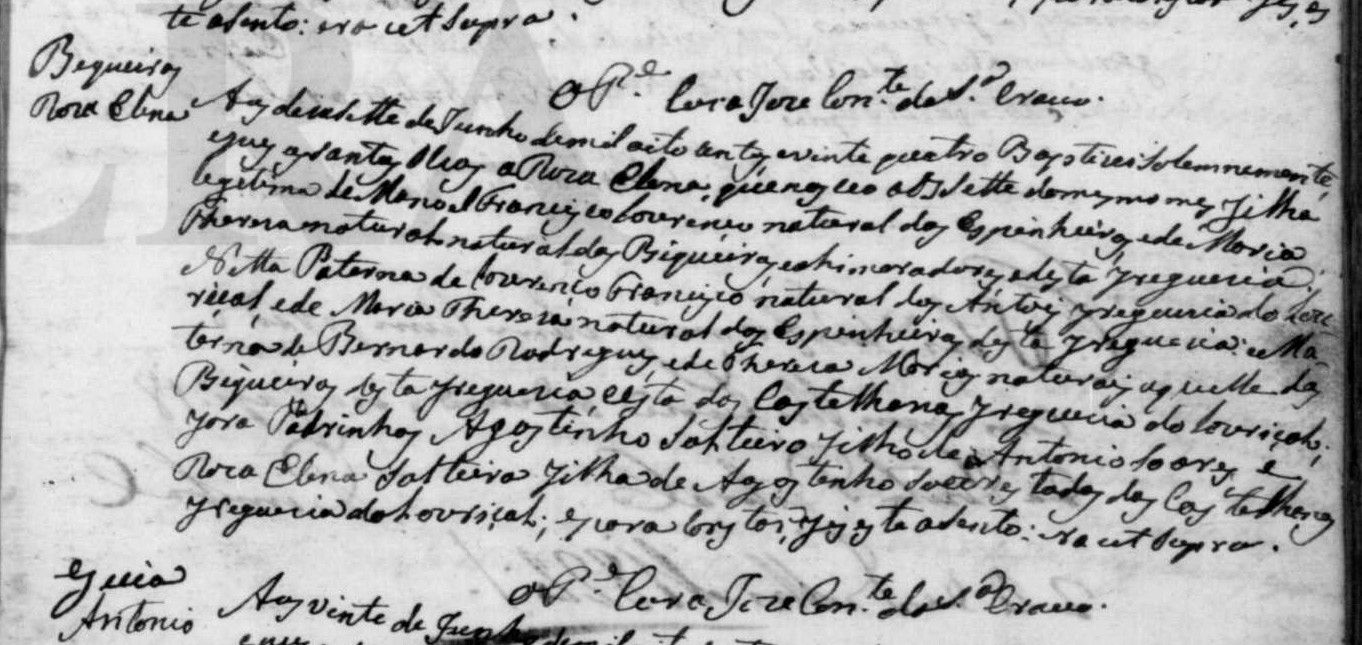 te asento: era ut supra.
Biqueiras
O P.e Cura Joze Con.te da S.a Cravo.
Roza Elena
Aos dezasette de Junho de mil oito centos e vinte quatro Baptizei solemnemente
e puz os santos Oleos a Roza Elena, que nasceo a dezsette do mesmo mes filha
legitima de Manoel Francisco Lourenco natural dos Espinheiros, e de Maria
Thereza natural natural das Biqueiras e ahi moradores e desta freguezia.
Netta Paterna de Lourenco Francisco natural dos Antoes freguezia do Lou
riçal, e de Maria Thereza natural dos Espinheiros desta freguezia: e Ma
terna de Bernardo Rodrigues, e de Thereza Maria naturais aquelle das
Biqueiras desta freguezia e esta dos Castelhanos freguezia do Louriçal;
fora Padrinhos Agostinho Solteiro filho de Antonio Soares e
Roza Elena Solteira filha de Agostinho Soares todos dos Castelhanos
freguezia do Louriçal; e para constar, fis este asento: era ut supra.
O P.e Cura Joze Con.te da S.a Cravo.
Guia
Antonio
Aos vinte de Junho de mil oito